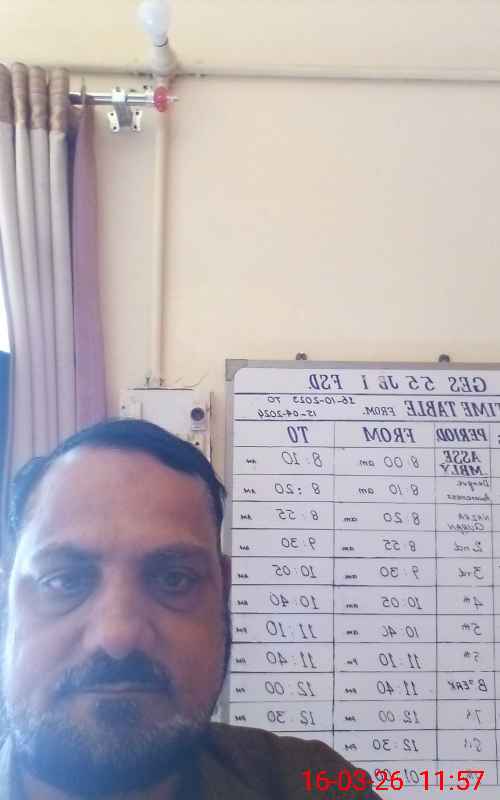 GES 55 JB 1 FSD.
TIME TABLE FROM. 16-10-2023 TO 15-04-2024
PERIOD. FROM TO
ASSE MBLY 8:00 am 8:10 AM
Dengue Awareness 8:10 am 8:20 AM
NAZRA QURAN 8:20 am 8:55 AM
2nd 8:55 am 9:30 AM
3rd 9:30 am 10:05 AM
4th 10:05 am 10:40 AM
5th 10:40 am 11:10 PM
11:10 PM 11:40 PM
BREAK 11:40 PM 12:00 PM
7th 12:00 PM 12:30 PM
8th 12:30 PM
01:00
16-03-26 11:57